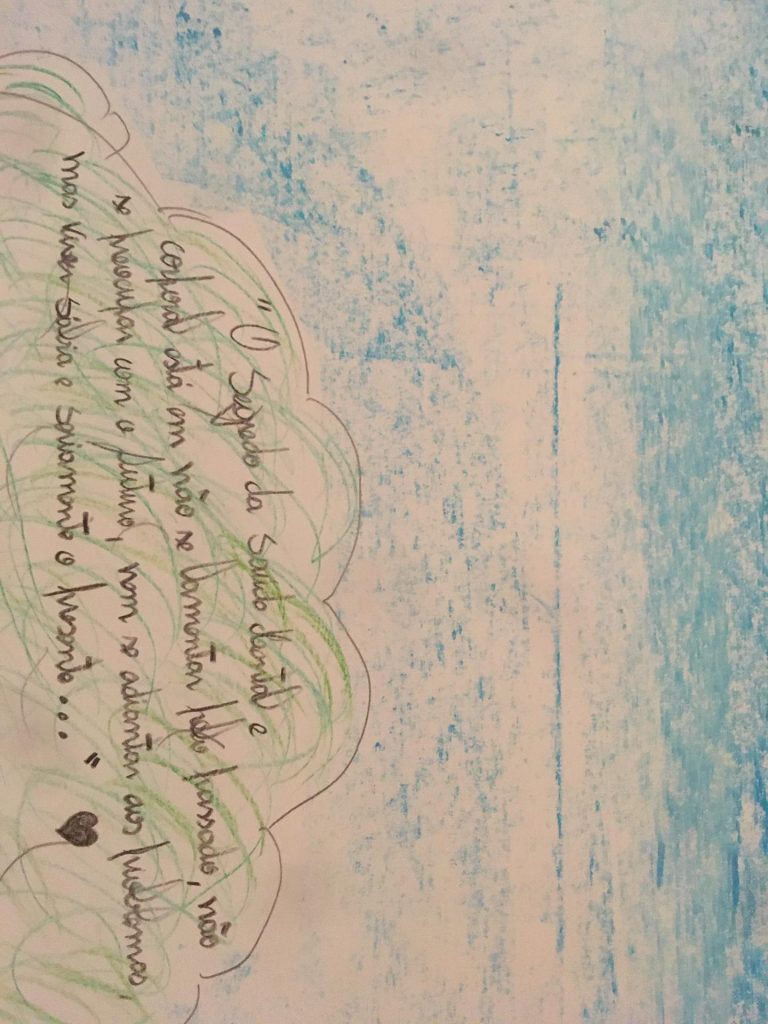 "O Segredo da Saúde Mental e
corporal está em não se lamentar pelo passado, não
se preocupar com o futuro, nem se adiantar aos problemas,
mas viver sábia e seriamente o presente..."